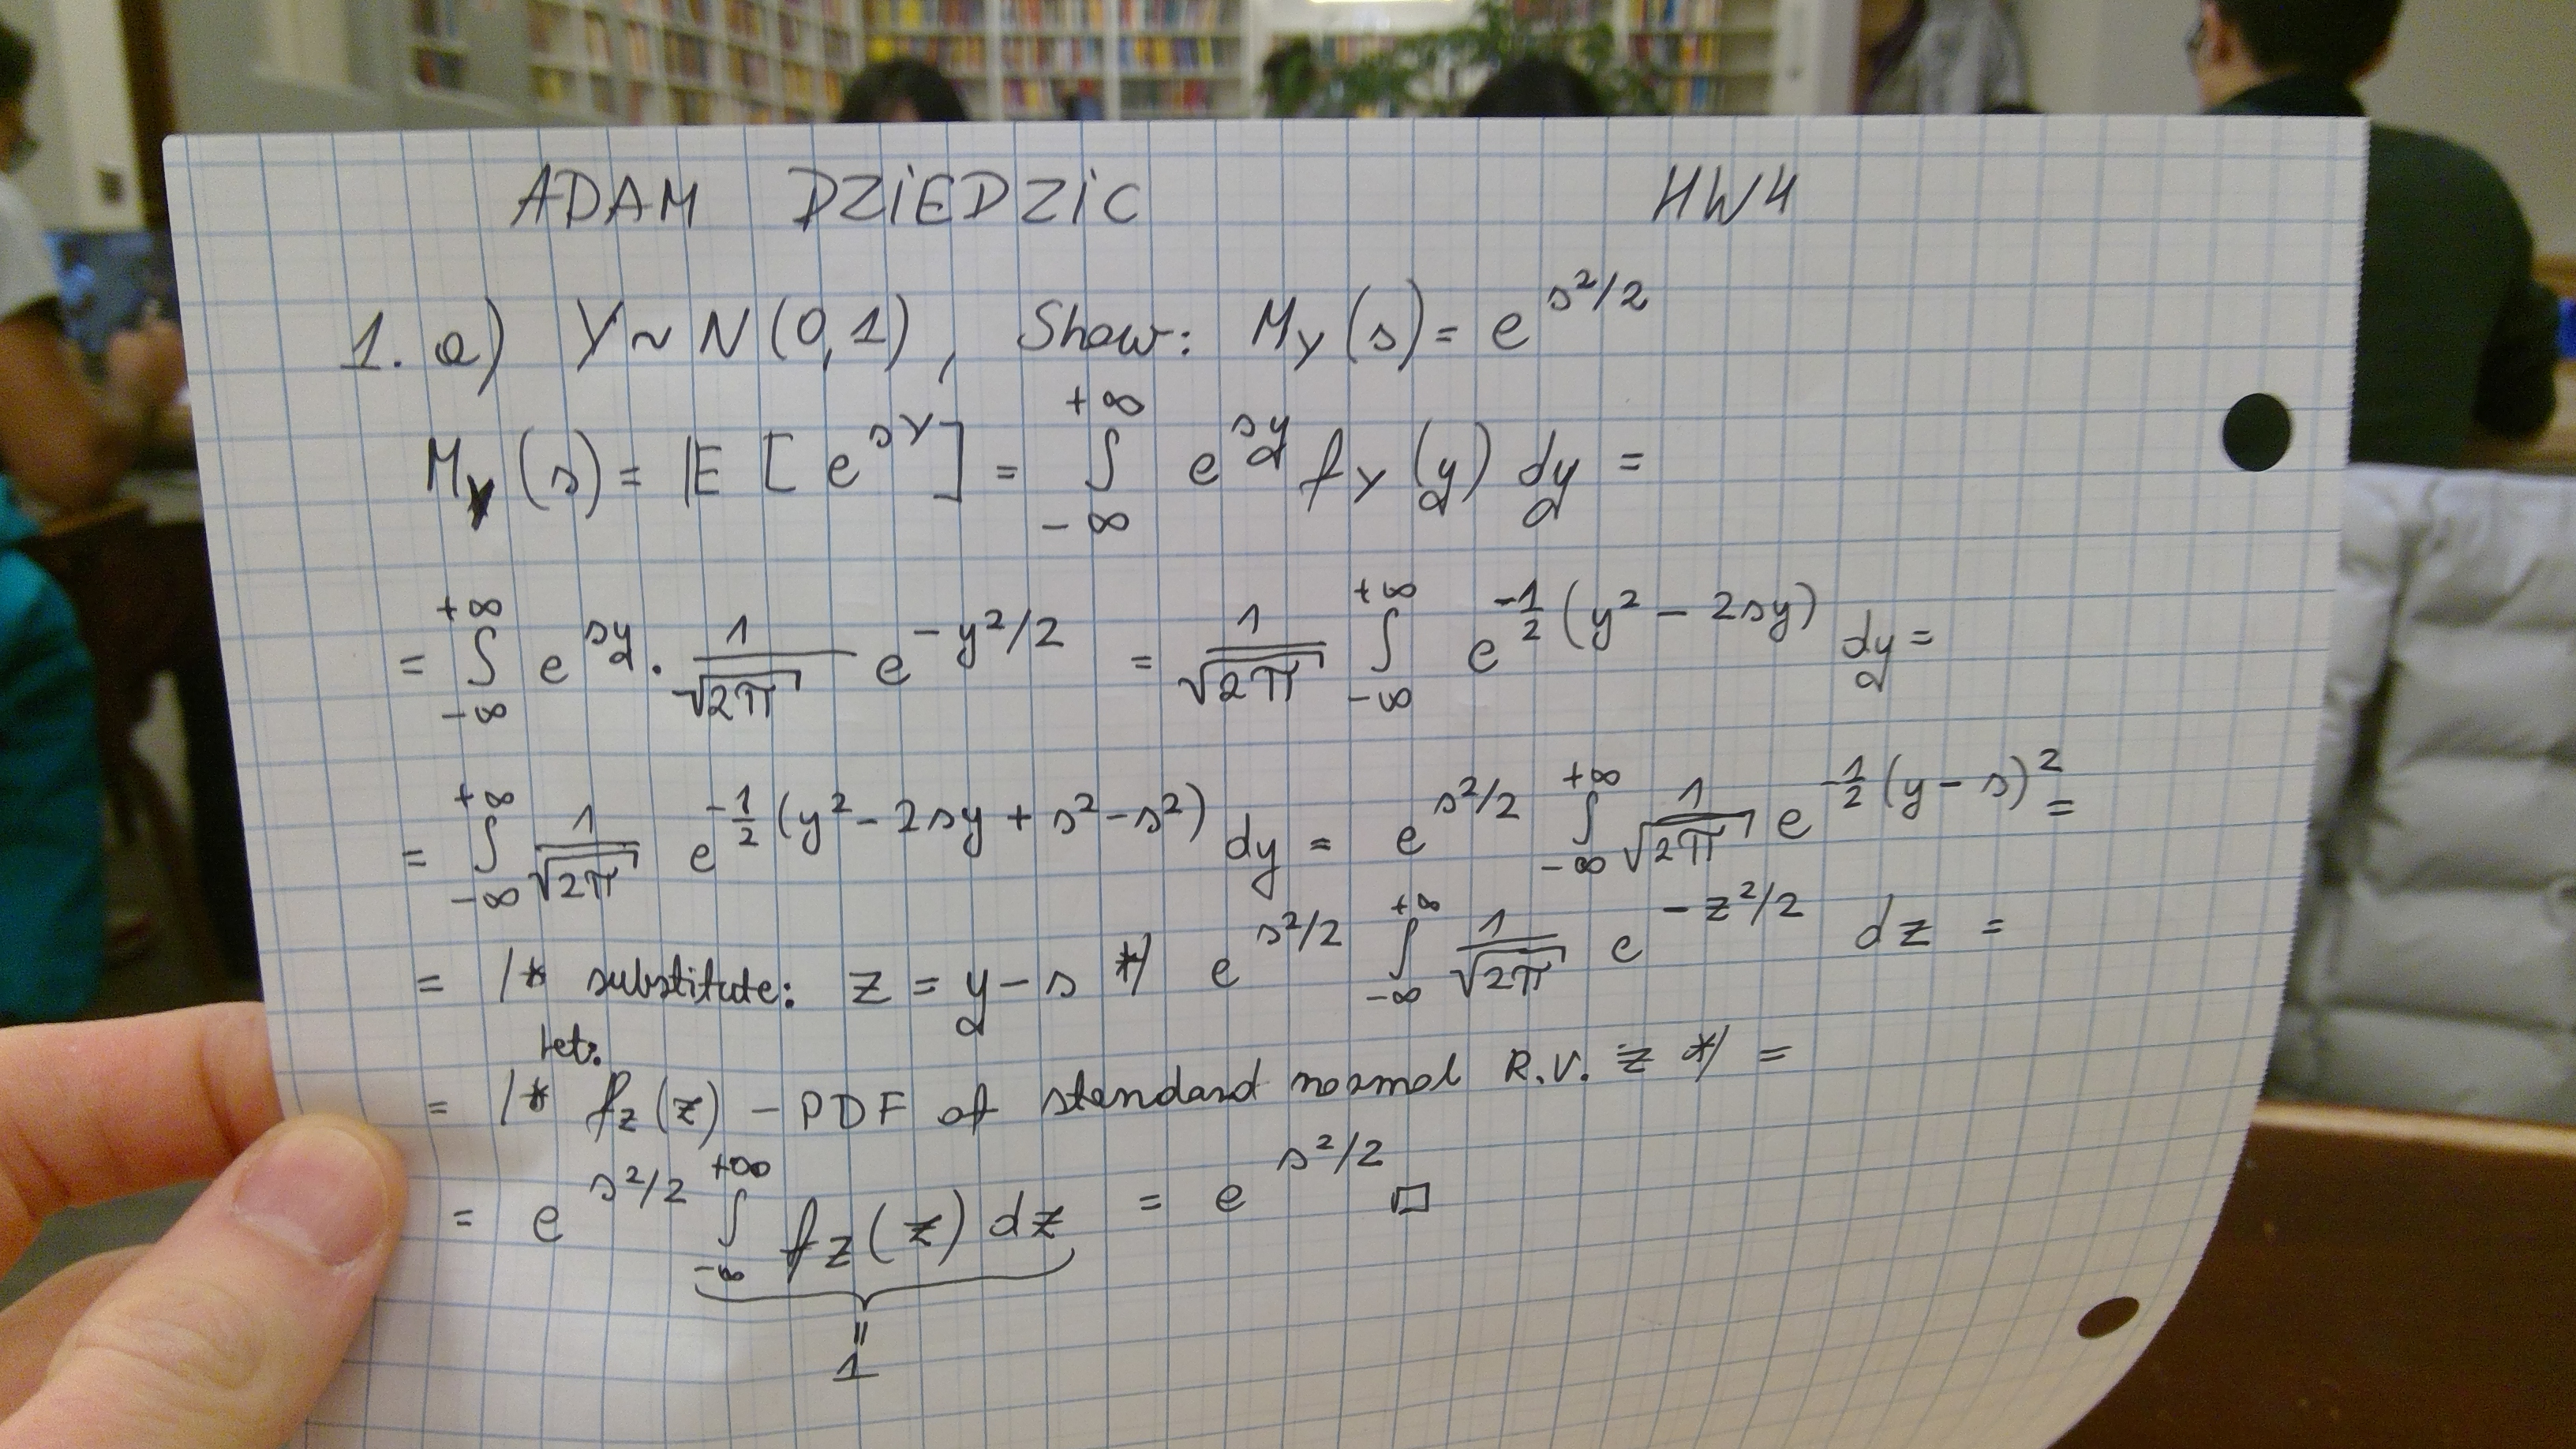 ADAM DZIEDZIC HW4
1. a) Y ~ N(0,1), Show: M_Y(s) = e^{s²/2}
M_Y(s) = E[e^{sY}] = ∫_{-∞}^{+∞} e^{sy} f_Y(y) dy =
= ∫_{-∞}^{+∞} e^{sy} · 1/√(2π) e^{-y²/2} = 1/√(2π) ∫_{-∞}^{+∞} e^{-1/2 (y² - 2sy)} dy =
= ∫_{-∞}^{+∞} 1/√(2π) e^{-1/2 (y² - 2sy + s² - s²)} dy = e^{s²/2} ∫_{-∞}^{+∞} 1/√(2π) e^{-1/2 (y - s)²} =
= /* substitute: z = y - s */ e^{s²/2} ∫_{-∞}^{+∞} 1/√(2π) e^{-z²/2} dz =
let:
= /* f_z(z) - PDF of standard normal R.V. z */ =
= e^{s²/2} ∫_{-∞}^{+∞} f_z(z) dz = e^{s²/2} □
=
1